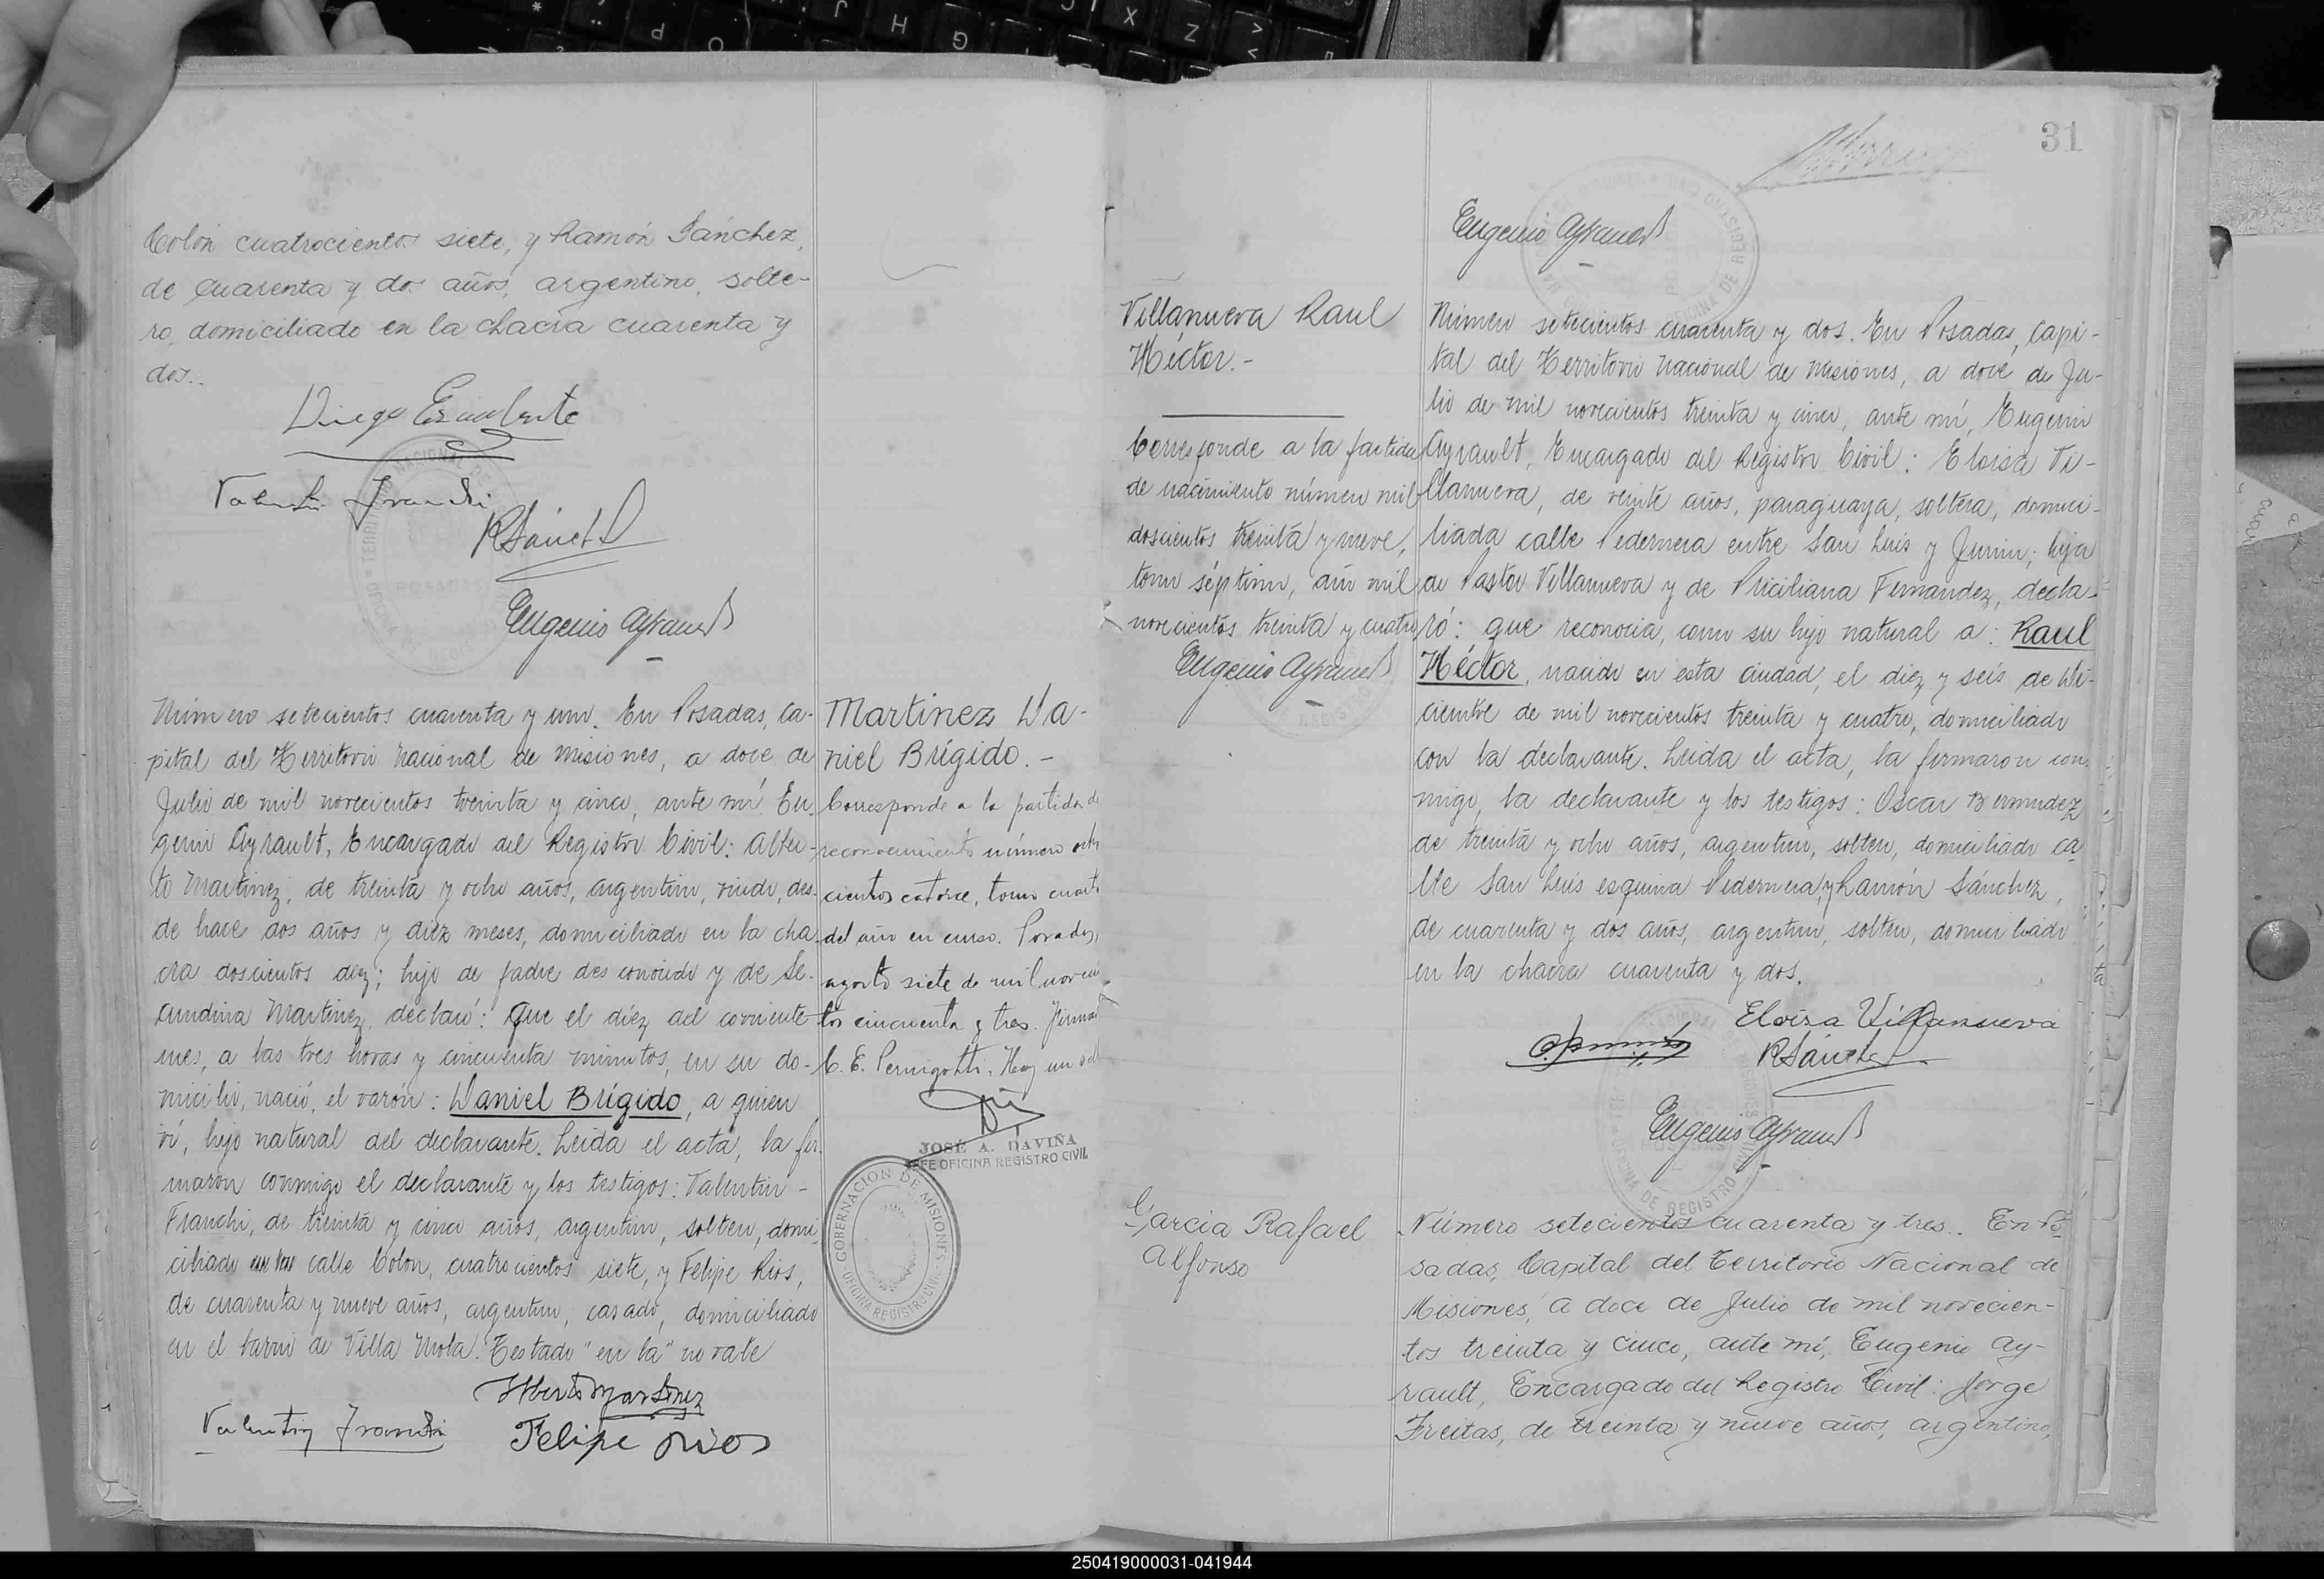 Colón cuatrocientos siete, y Ramón Sánchez,
de cuarenta y dos años, argentino, solte-
ro, domiciliado en la chacra cuarenta y
dos..
Diego Escalante
Valentín Franchi
RSánchez
Eugenio Ayrault
Número setecientos cuarenta y uno. En Posadas, ca-
pital del Territorio Nacional de Misiones, a doce de
Julio de mil novecientos treinta y cinco, ante mí Eu-
genio Ayrault, Encargado del Registro Civil: Alber-
to Martinez, de treinta y ocho años, argentino, viudo, des-
de hace dos años y diez meses, domiciliado en la cha-
cra doscientos diez; hijo de padre desconocido y de Se-
cundina Martinez, declaró: Que el diez del corriente
mes, a las tres horas y cincuenta minutos, en su do-
micilio, nació, el varón: Daniel Brígido, a quien
ví, hijo natural del declarante. Leida el acta, la fir-
maron conmigo el declarante y los testigos: Valentín-
Franchi, de treinta y cinco años, argentino, soltero, domi-
ciliado en la calle Colon, cuatrocientos siete, y Felipe Rios,
de cuarenta y nueve años, argentino, casado, domiciliado
en el barrio de Villa Mota. Testado "en la" no vale
Alberto Martinez
Valentin Franchi
Felipe Rios
Martinez Da-
niel Brígido.-
Corresponde a la partida de
reconocimiento número ocho
cientos catorce, tomo cuarto
del año en curso. Posadas,
agosto siete de mil novecien
tos cincuenta y tres. Firmado
C. E. Pernigotti. Hay un sello
JOSÉ A. DAVIÑA
JEFE OFICINA REGISTRO CIVIL
GOBERNACION DE MISIONES
OFICINA REGISTRO CIVIL
31
Eugenio Ayrault
Villanueva Raul
Héctor.-
Corresponde a la partida
de nacimiento número mil
doscientos treinta y nueve,
tomo séptimo, año mil
novecientos treinta y cuatro
Eugenio Ayrault
Número setecientos cuarenta y dos. En Posadas, Capi-
tal del Territorio Nacional de Misiones, a doce de Ju-
lio de mil novecientos treinta y cinco, ante mí, Eugenio
Ayrault, Encargado del Registro Civil: Eloisa Vi-
llanueva, de veinte años, paraguaya, soltera, domici-
liada calle Pedernera entre San Luis y Junin; hija
de Pastor Villanueva y de Priciliana Fernandez, decla-
ró: que reconocia, como su hijo natural a: Raul
Héctor, nacido en esta ciudad, el diez y seis de Di-
ciembre de mil novecientos treinta y cuatro, domiciliado
con la declarante. Leida el acta, la firmaron con-
migo, la declarante y los testigos: Oscar Bermudez
de treinta y ocho años, argentino, soltero, domiciliado ca-
lle San Luis esquina Pedernera, y Ramón Sánchez,
de cuarenta y dos años, argentino, soltero, domiciliado
en la chacra cuarenta y dos.
Eloisa Villanueva
RSánchez
Eugenio Ayrault
Garcia Rafael
Alfonso
Número setecientos cuarenta y tres.. En Po-
sadas, Capital del Territorio Nacional de
Misiones, a doce de Julio de mil novecien-
tos treinta y cinco, ante mí, Eugenio Ay-
rault, Encargado del Registro Civil: Jorge
Freitas, de treinta y nueve años, argentino,
250419000031-041944